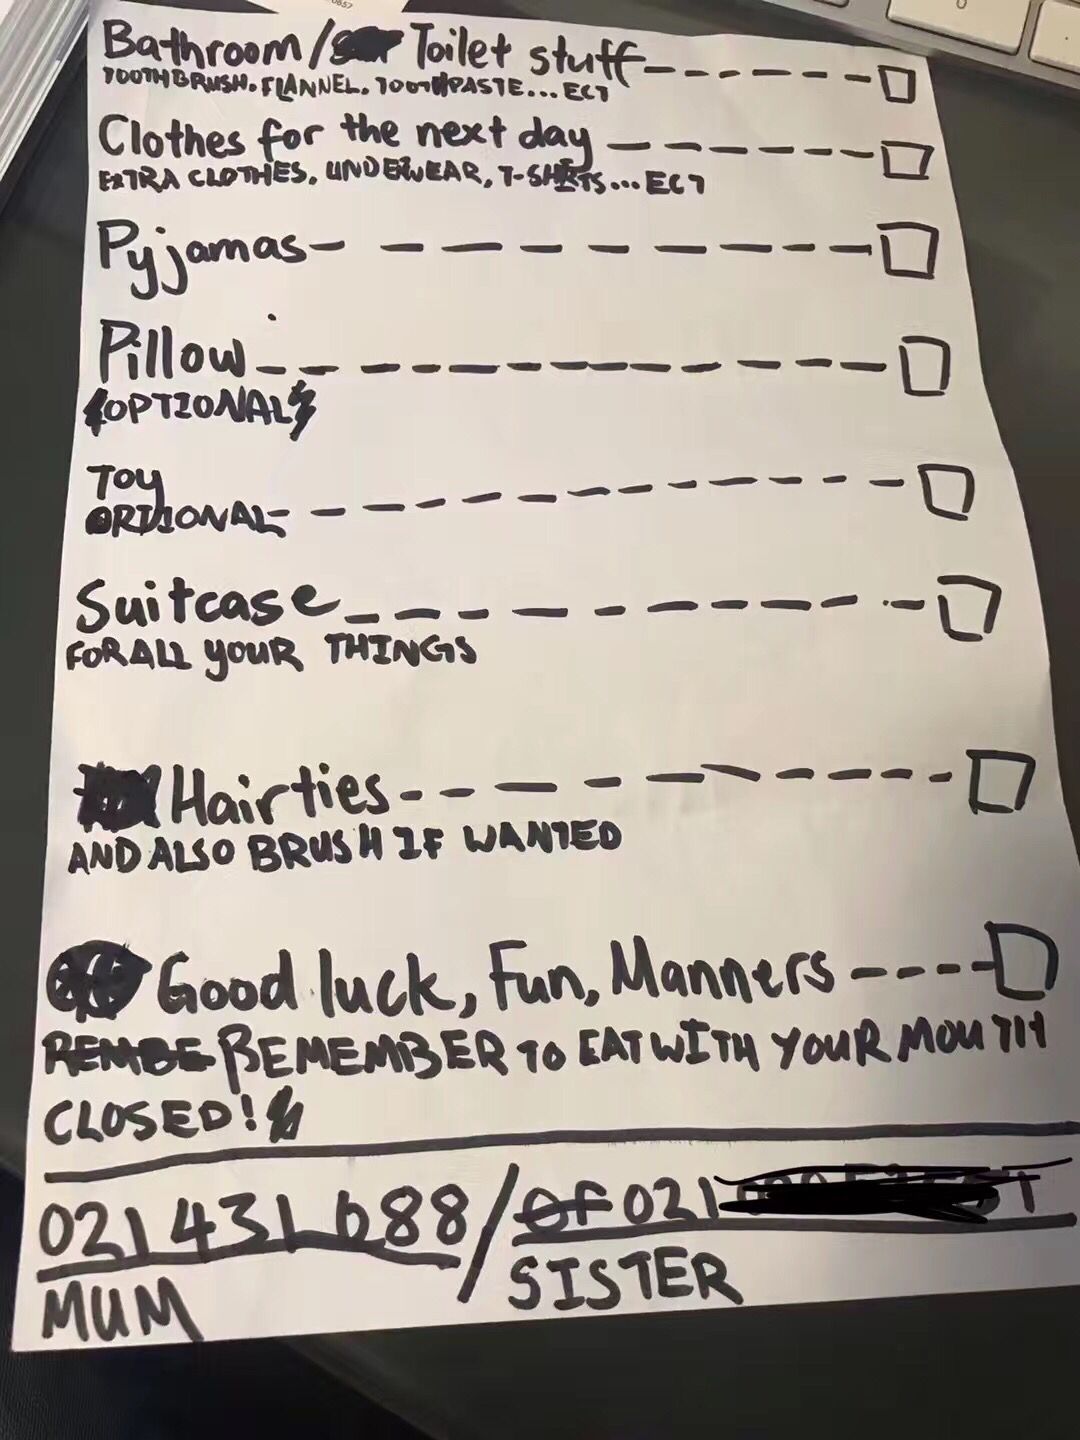 Bathroom/ Toilet stuff
TOOTHBRUSH. FLANNEL. TOOTHPASTE... ECT
Clothes for the next day
EXTRA CLOTHES. UNDERWEAR, T-SHIRTS... ECT
Pyjamas
Pillow
OPTIONAL
Toy
OPTIONAL
Suitcase
FOR ALL YOUR THINGS
Hairties
AND ALSO BRUSH IF WANTED
Good luck, Fun, Manners
REMEMBER TO EAT WITH YOUR MOUTH
CLOSED!
021 431 688 / or 021
MUM SISTER